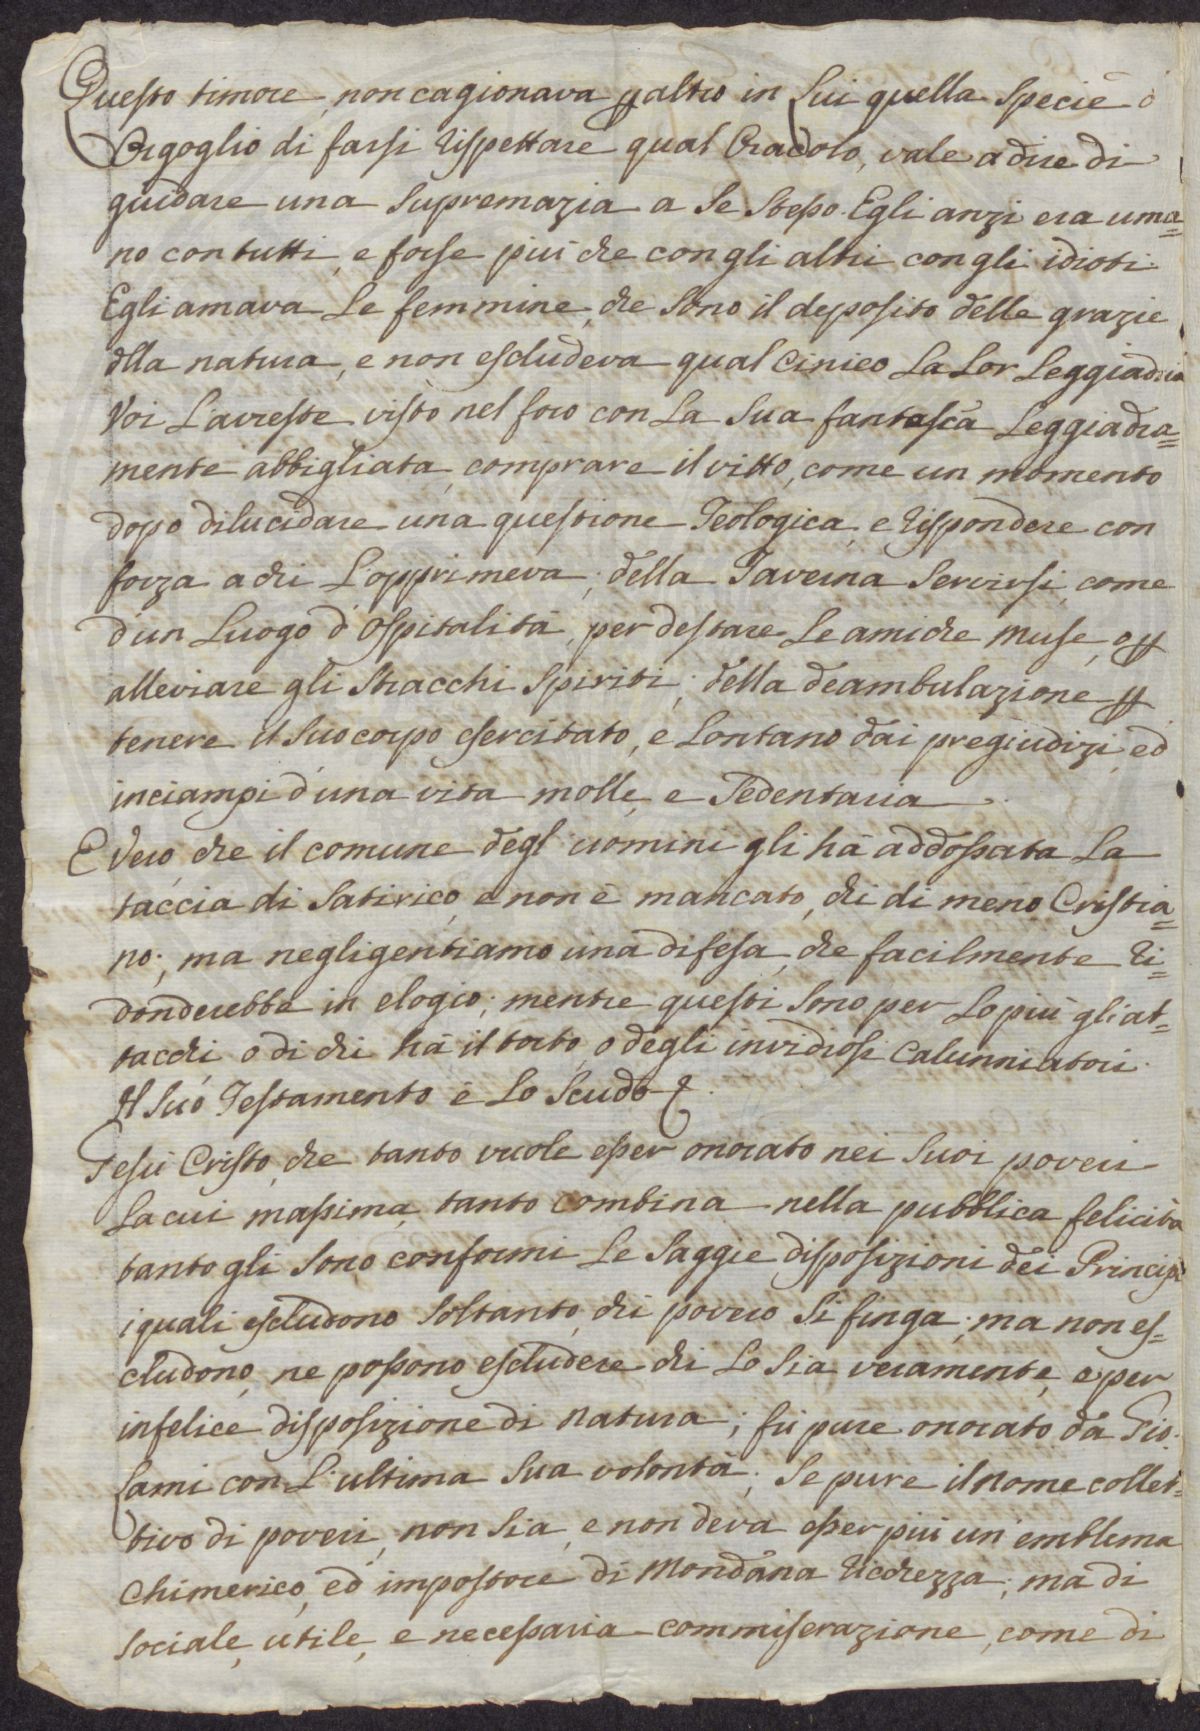 Questo timore, non cagionava p altro in Lui quella Specie d
Orgoglio di farsi rispettare qual Oracolo, vale a dire di
guidare una Supremazia a Se Stesso. Egli anzi era uma=
no con tutti, e forse più che con gli altri con gli idioti.
Egli amava Le femmine, che Sono il deposito delle grazie
dlla natura, e non escludeva qual Cinico La Lor Leggiadria
Voi L'avreste visto nel foro con La Sua fantesca Leggiadra=
mente abbigliata, comprare il vitto, come un momento
dopo dilucidare una questione Teologica, e rispondere con
forza a chi L'opprimeva; della Taverna Servirsi, come
d'un Luogo d'Ospitalità, per destare Le amiche Muse, o p
alleviare gli Stracchi Spiriti; della deambulazione p
tenere il Suo corpo esercitato, e Lontano dai pregiudizi, ed
inciampi d'una vita molle, e Sedentaria.
E Vero, che il comune degl'uomini gli hà addossata La
taccia di Satirico, e non è mancato, chi di meno Cristia=
no; ma negligentiamo una difesa, che facilmente ri=
donderebbe in elogio; mentre questi Sono per Lo più gli at=
tacchi o di chi hà il torto, o degli invidiosi Calunniatori.
Il Suo Testamento è Lo Scudo
Gesù Cristo, che tanto vuole esser onorato nei Suoi poveri
La cui massima, tanto combina nella pubblica felicità
tanto gli Sono conformi Le Saggie disposizioni dei Principi
i quali escludono Soltanto, chi povero Si finga; ma non es=
cludono, ne possono escludere chi Lo Sia veramente, e per
infelice disposizione di Natura; fù pure onorato da Gio.
Lami con L'ultima Sua volontà; Se pure il Nome collet=
tivo di poveri, non Sia, e non deva esser più un'emblema
Chimerico, ed impostore di Mondana ricchezza; ma di
Sociale, utile, e necessaria commiserazione, come di